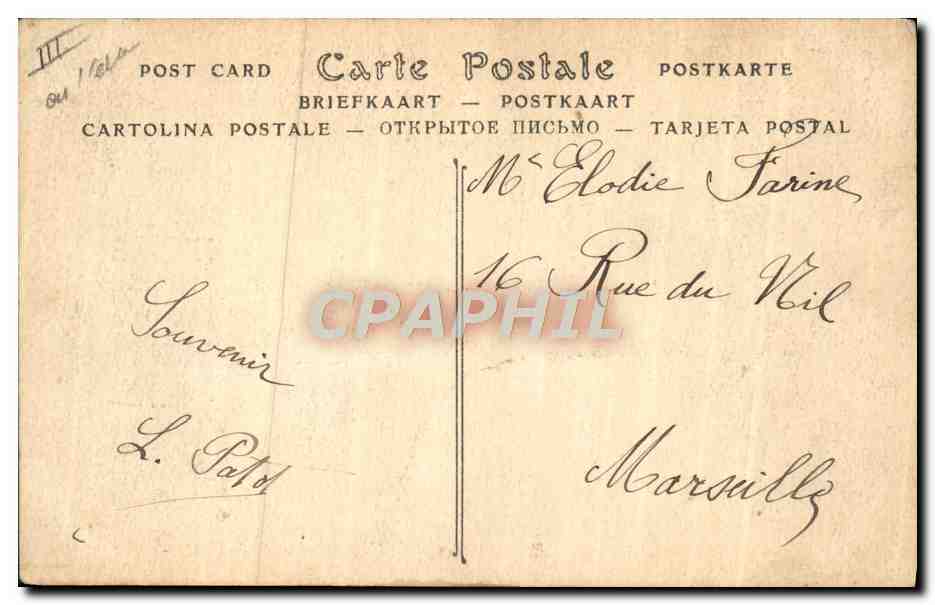 III
ou
POST CARD Carte Postale POSTKARTE
BRIEFKAART — POSTKAART
CARTOLINA POSTALE — ОТКРЫТОЕ ПИСЬМО — TARJETA POSTAL
Mᵉ Elodie Farine
16 Rue du Nil
Marseille
Souvenir
L. Patot
CPAPHIL